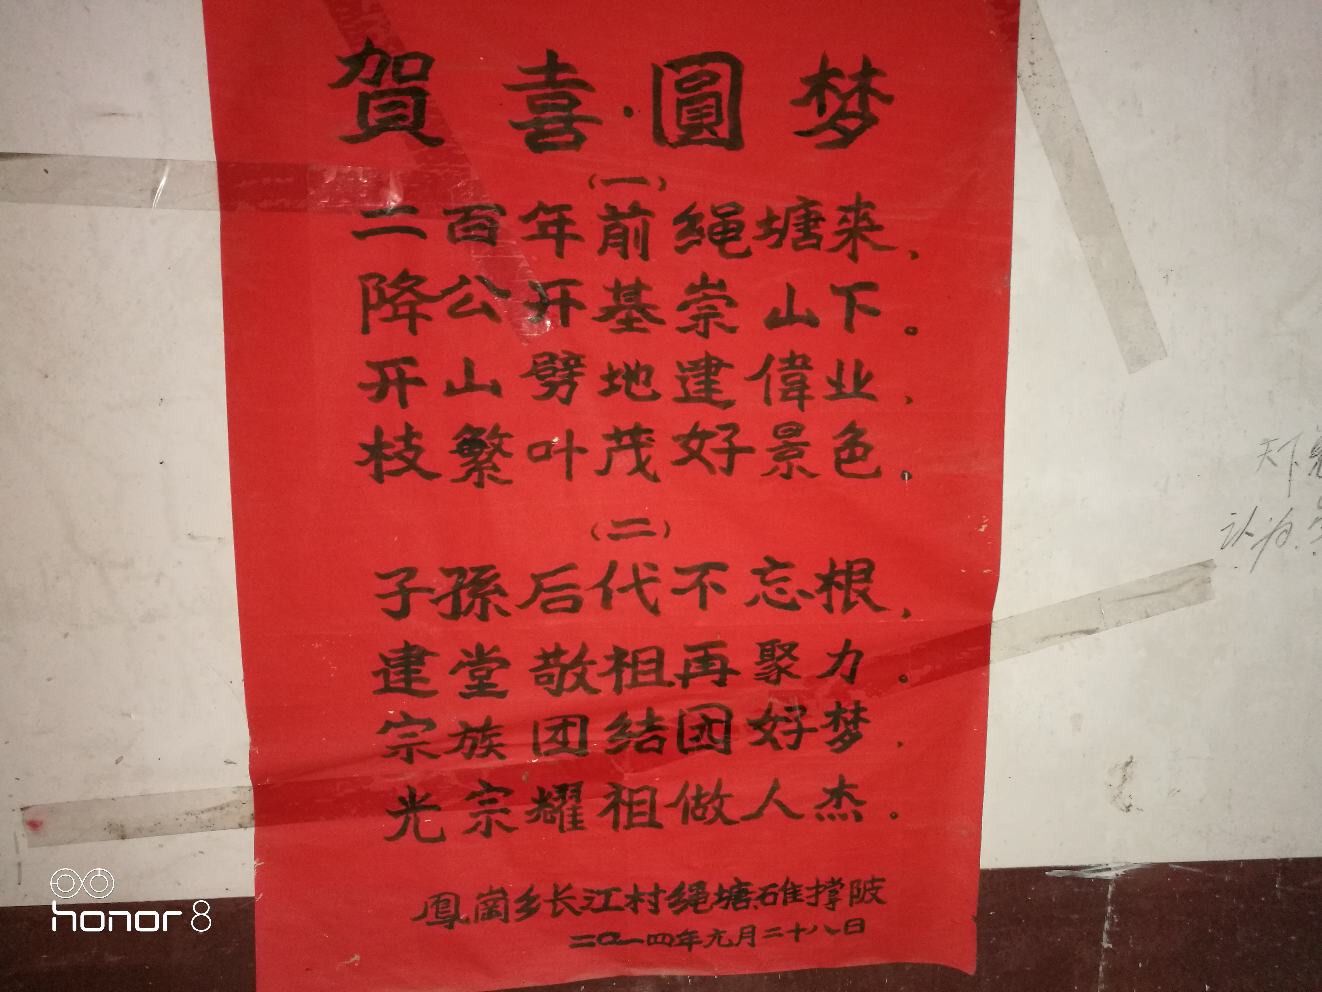 賀喜·圓梦
(一)
二百年前绳塘来,
降公开基崇山下。
开山劈地建偉业,
枝繁叶茂好景色。
(二)
子孫后代不忘根,
建堂敬祖再聚力。
宗族团结圆好梦,
光宗耀祖做人杰。
鳳崗乡长江村绳塘碓撑陂
二〇一四年元月二十八日
天下
认为
honor 8